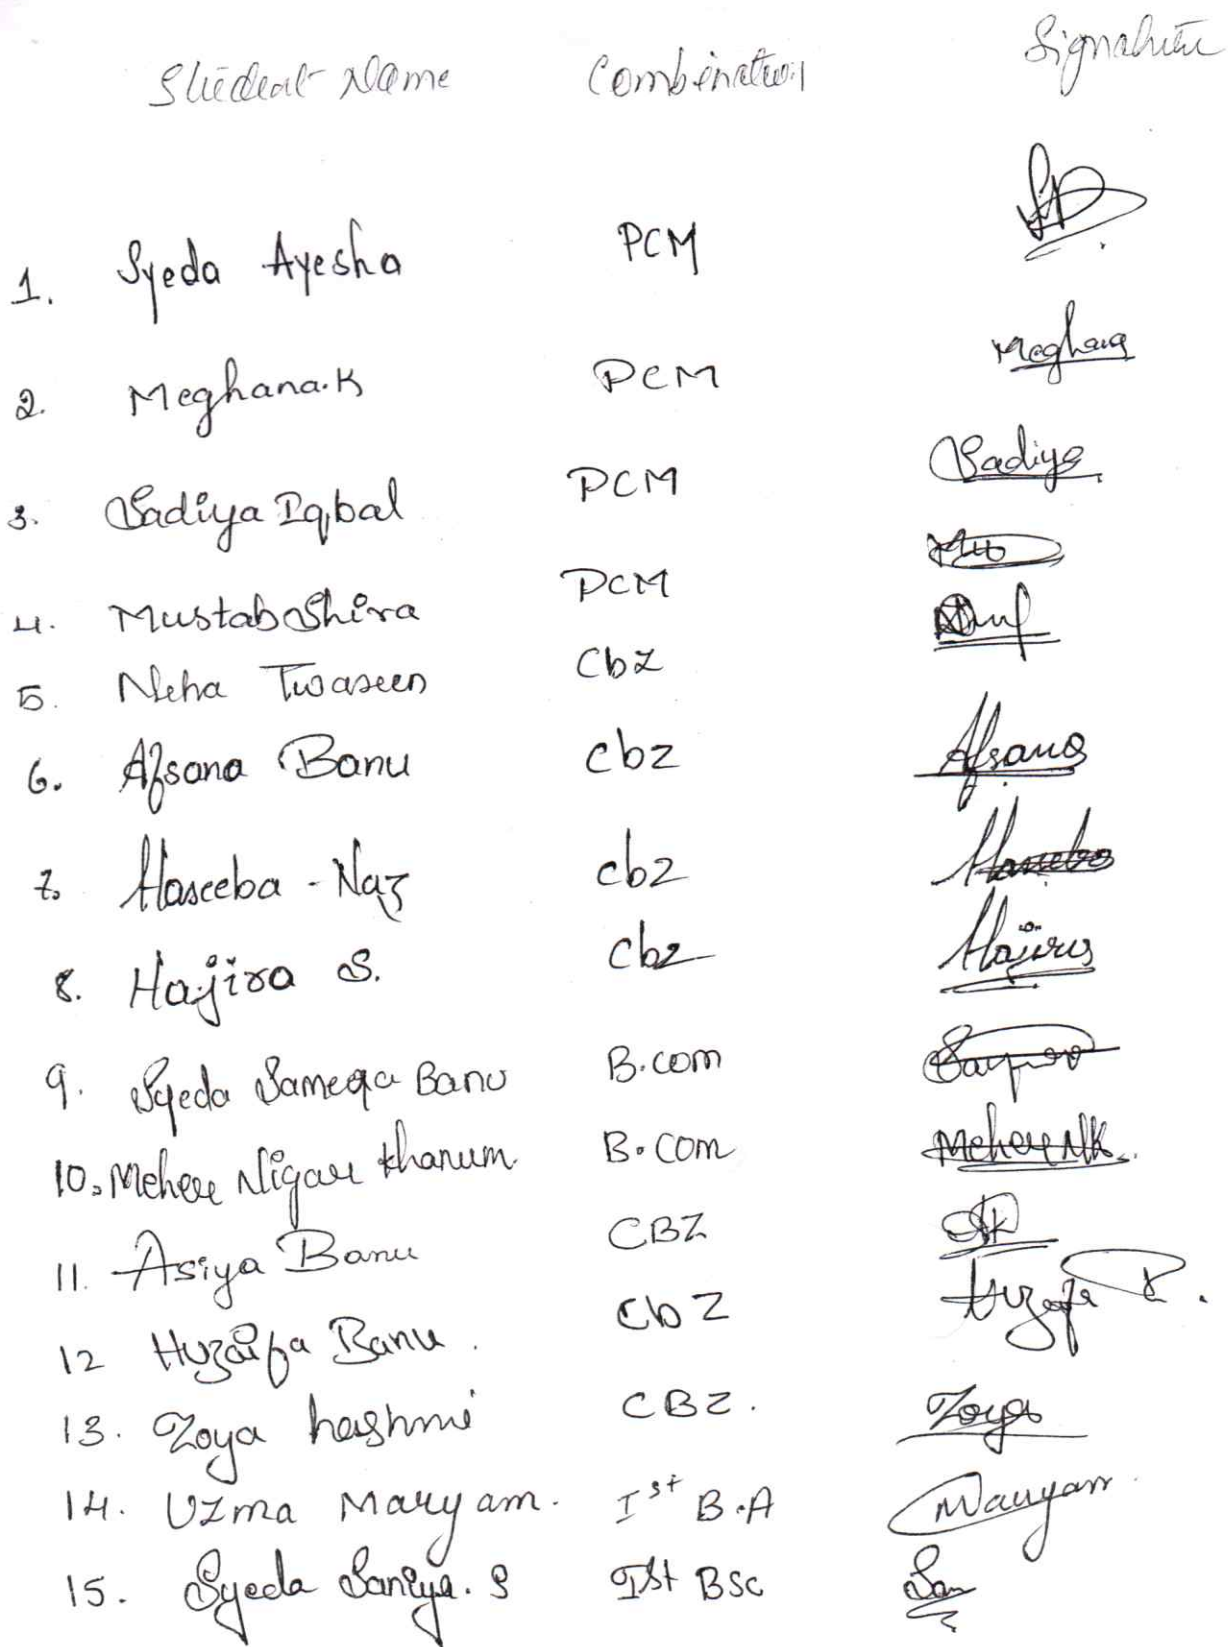 Student Name Combination Signature
1. Syeda Ayesha PCM
2. Meghana.K PCM Meghana
3. Sadiya Iqbal PCM Sadiya
4. Mustabshira PCM
5. Neha Twaseen CbZ
6. Afsana Banu cbz Afsana
7. Haseeba - Naz cbz
8. Hajira S. cbz Hajira
9. Syeda Sameea Banu B.com
10. Meher Nigar Khanum. B.com Meher NK
11. Asiya Banu CBZ
12 Huzaifa Banu. CbZ Huzaifa
13. Zoya hashmi CBZ. Zoya
14. Uzma Maryam. Ist B.A Maryam
15. Syeda Saniya. S Ist BSc San